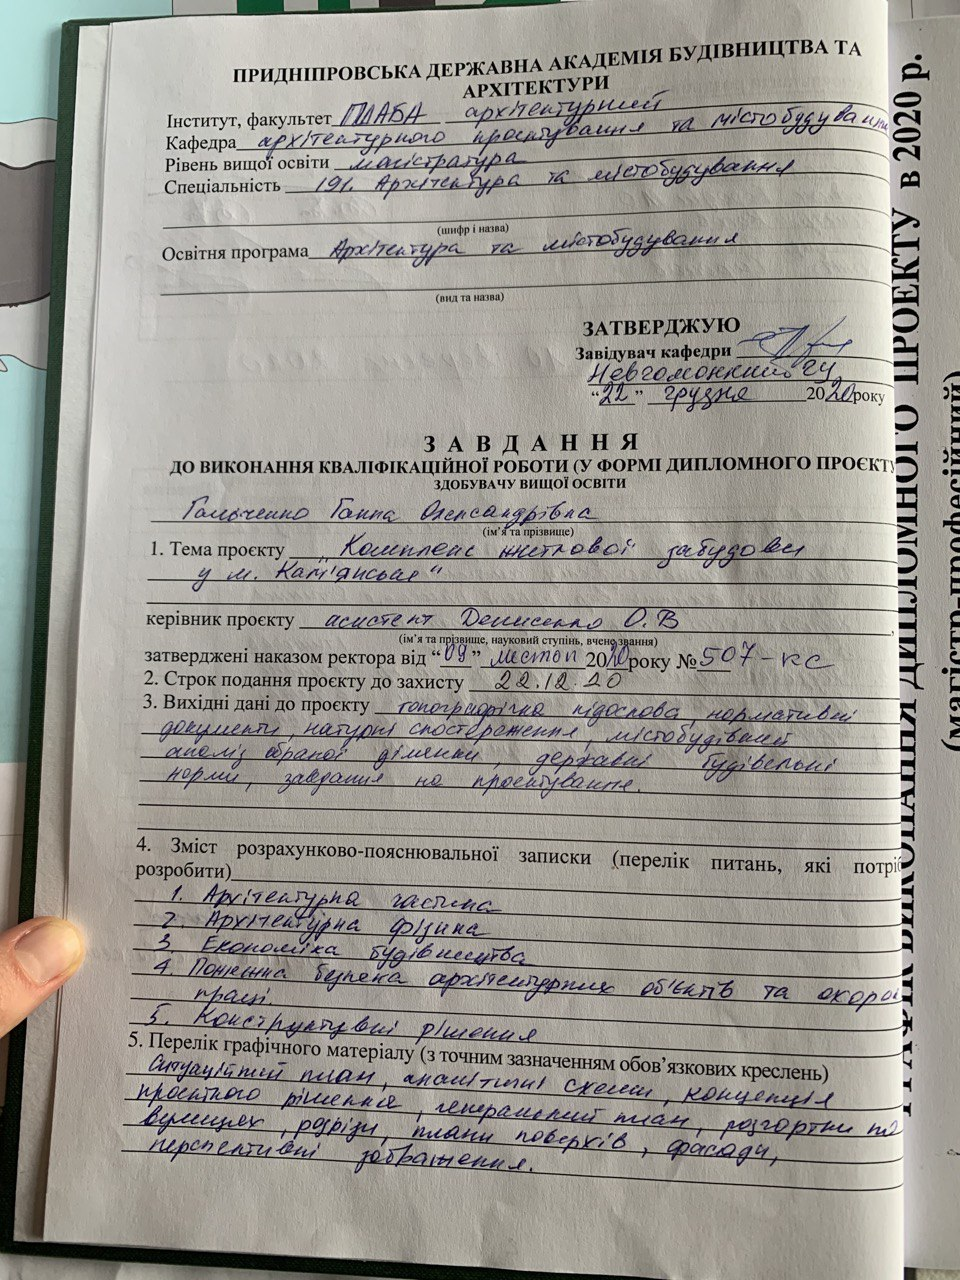 ПРИДНІПРОВСЬКА ДЕРЖАВНА АКАДЕМІЯ БУДІВНИЦТВА ТА
АРХІТЕКТУРИ
Інститут, факультет ПДАБА архітектурний
Кафедра архітектурного проєктування та містобудування
Рівень вищої освіти магістратура
Спеціальність 191. Архітектура та містобудування
(шифр і назва)
Освітня програма Архітектура та містобудування
(вид та назва)
ЗАТВЕРДЖУЮ
Завідувач кафедри
Невгомонний Г.У.
“22” грудня 2020 року
З А В Д А Н Н Я
ДО ВИКОНАННЯ КВАЛІФІКАЦІЙНОЇ РОБОТИ (У ФОРМІ ДИПЛОМНОГО ПРОЄКТУ
ЗДОБУВАЧУ ВИЩОЇ ОСВІТИ
Гальченко Ганна Олександрівна
(ім’я та прізвище)
1. Тема проєкту „Комплекс житлової забудови
у м. Кам'янське“
керівник проєкту асистент Денисенко О.В
(ім’я та прізвище, науковий ступінь, вчене звання)
затверджені наказом ректора від “09” листоп 2020 року № 507-кс
2. Строк подання проєкту до захисту 22.12.20
3. Вихідні дані до проєкту топографічна підоснова, нормативні
документи, натурні спостереження, містобудівний
аналіз обраної ділянки, державні будівельні
норми, завдання на проєктування.
4. Зміст розрахунково-пояснювальної записки (перелік питань, які потріб
розробити)
1. Архітектурна частина
2. Архітектурна фізика
3 Економіка будівництва
4. Пожежна безпека архітектурних об'єктів та охоро
праці.
5. Конструктивні рішення
5. Перелік графічного матеріалу (з точним зазначенням обов’язкових креслень)
Ситуаційний план, аналітичні схеми, концепція
проєктного рішення, генеральний план, розгортки по
вулицях, розрізи, плани поверхів, фасади,
перспективні зображення.
ГРАФІК ВИКОНАННЯ ДИПЛОМНОГО ПРОЕКТУ в 2020 р.
(магістр-професійний)